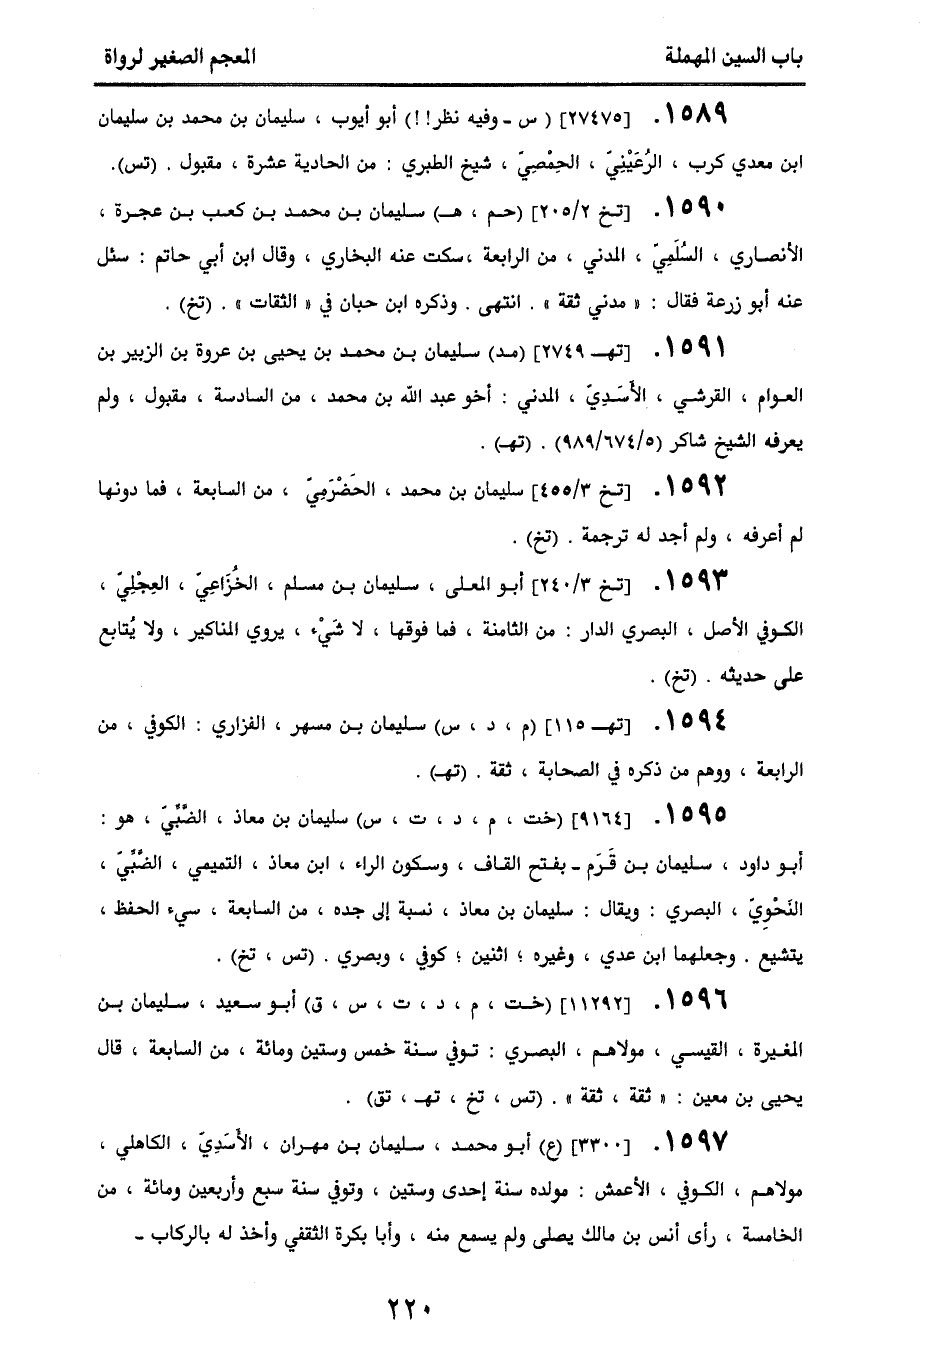 باب السين المهملة المعجم الصغير لرواة
١٥٨٩. [٢٧٤٧٥] ( س ـ وفيه نظر!!) أبو أيوب ، سليمان بن محمد بن سليمان
ابن معدي كرب ، الرُعَيْنِيّ ، الحِمْصِيّ ، شيخ الطبري : من الحادية عشرة ، مقبول . (تس).
١٥٩٠. [تخ ٢/ ٢٠٥] (حم ، هـ) سليمان بن محمد بن كعب بن عجرة ،
الأنصاري ، السُلَمِيّ ، المدني ، من الرابعة ،سكت عنه البخاري ، وقال ابن أبي حاتم : سئل
عنه أبو زرعة فقال : « مدني ثقة » . انتهى . وذكره ابن حبان في « الثقات » . (تخ) .
١٥٩١. [تهـ ٢٧٤٩] (مد) سليمان بن محمد بن يحيى بن عروة بن الزبير بن
العوام ، القرشي ، الأَسَدِيّ ، المدني : أخو عبد الله بن محمد ، من السادسة ، مقبول ، ولم
يعرفه الشيخ شاكر (٥/ ٦٧٤/ ٩٨٩) . (تهـ) .
١٥٩٢. [تخ ٣/ ٤٥٥] سليمان بن محمد ، الحَضْرَمِيّ ، من السابعة ، فما دونها
لم أعرفه ، ولم أجد له ترجمة . (تخ) .
١٥٩٣. [تخ ٣/ ٢٤٠] أبو المعلى ، سليمان بن مسلم ، الخُزَاعِيّ ، العِجْلِيّ ،
الكوفي الأصل ، البصري الدار : من الثامنة ، فما فوقها ، لا شَيْء ، يروي المناكير ، ولا يُتابع
على حديثه . (تخ) .
١٥٩٤. [تهـ ١١٥] (م ، د ، س) سليمان بن مسهر ، الفزاري : الكوفي ، من
الرابعة ، ووهم من ذكره في الصحابة ، ثقة . (تهـ) .
١٥٩٥. [٩١٦٤] (خت ، م ، د ، ت ، س) سليمان بن معاذ ، الضَّبِّيّ ، هو :
أبو داود ، سليمان بن قَرَم ـ بفتح القاف ، وسكون الراء ، ابن معاذ ، التميمي ، الضَّبِّيّ ،
النَحْوِيّ ، البصري : ويقال : سليمان بن معاذ ، نسبة إلى جده ، من السابعة ، سيء الحفظ ،
يتشيع . وجعلهما ابن عدي ، وغيره ؛ اثنين ؛ كوفي ، وبصري . (تس ، تخ) .
١٥٩٦. [١١٢٩٢] (خت ، م ، د ، ت ، س ، ق) أبو سعيد ، سليمان بن
المغيرة ، القيسي ، مولاهم ، البصري : توفي سنة خمس وستين ومائة ، من السابعة ، قال
يحيى بن معين : « ثقة ، ثقة » . (تس ، تخ ، تهـ ، تق) .
١٥٩٧. [٣٣٠٠] (ع) أبو محمد ، سليمان بن مهران ، الأَسَدِيّ ، الكاهلي ،
مولاهم ، الكوفي ، الأعمش : مولده سنة إحدى وستين ، وتوفي سنة سبع وأربعين ومائة ، من
الخامسة ، رأى أنس بن مالك يصلى ولم يسمع منه ، وأبا بكرة الثقفي وأخذ له بالركاب ـ
٢٢٠